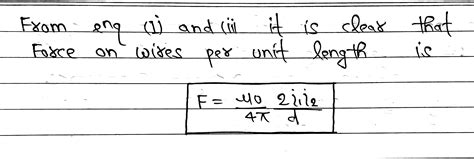 From enq (i) and (ii) it is clear that
Force on wires per unit length is
F = μ0/4π 2i1i2/d